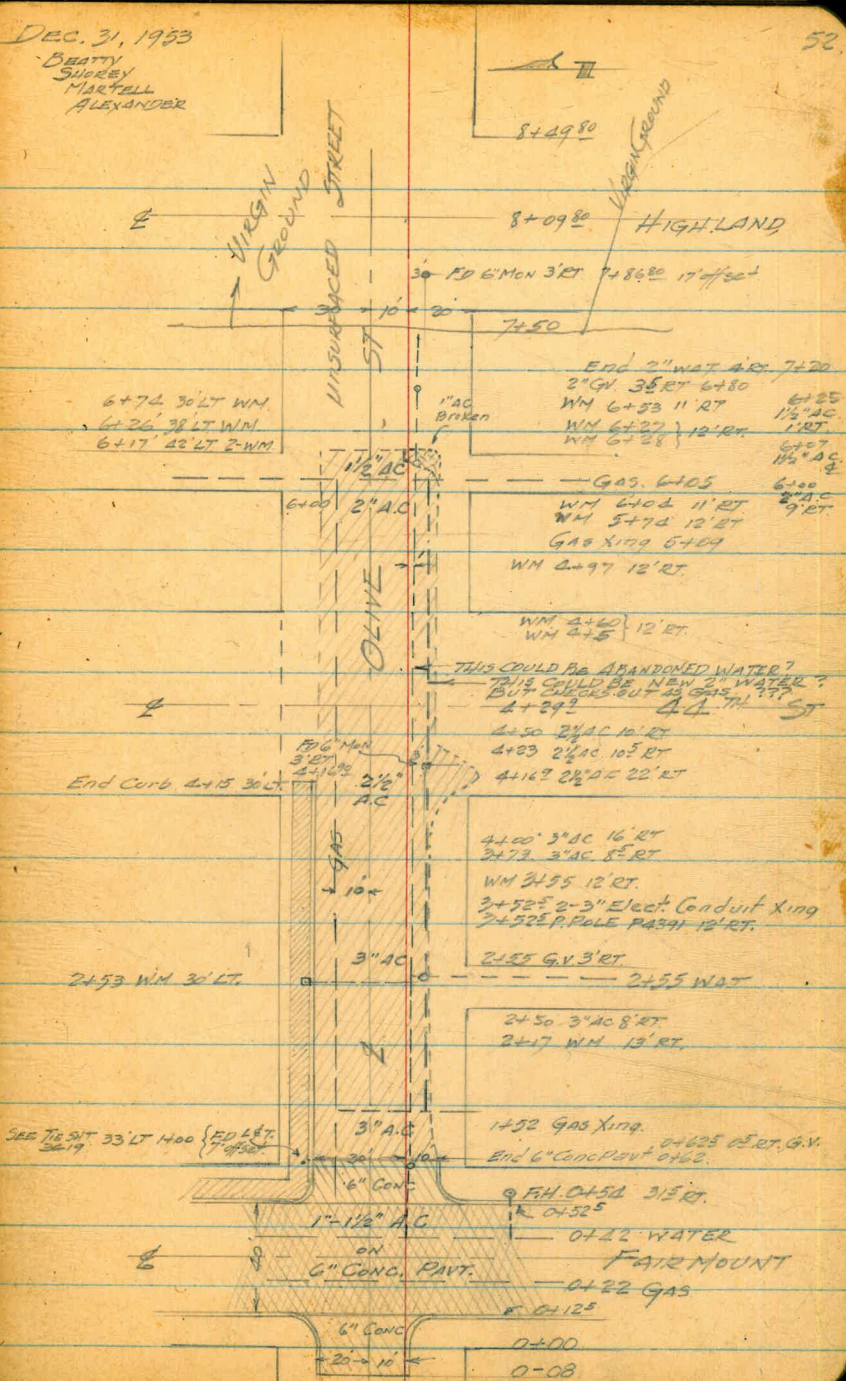 DEC. 31, 1953
BEATTY
SHOREY
MARTELL
ALEXANDER
52.
8+49 80
VIRGIN GROUND
VIRGIN
GROUND
UNSURFACED STREET
℄
8+09 80 HIGHLAND
3' FD 6" MON 3' RT 7+86 80 17' offset
30' 10' 20'
7+50
ST
End 2" WAT 4' RT. 7+20
2" GV. 3 5 RT 6+80
WM 6+53 11' RT
WM 6+27 } 12' RT.
WM 6+28
6+25
1½" AC.
1' RT
6+07
1½" AC.
℄
6+00
2" A.C
9' RT.
6+74 30' LT WM.
6+26 38' LT WM.
6+17 42' LT 2-WM.
1" AC
Broken
1½" AC
GAS. 6+05
6+00 2" A.C
WM 6+04 11' RT
WM 5+74 12' RT
GAS Xing 5+09
WM 4+97 12' RT.
OLIVE
WM 4+60 } 12' RT.
WM 4+5
THIS COULD BE ABANDONED WATER?
THIS COULD BE NEW 2" WATER?
BUT CHECKS OUT AS GAS ???
℄
4+29 9 44TH ST
4+50 2½ AC 10' RT
4+23 2½ AC 10 5 RT
4+16 9 2½" AC 22' RT
FD 6" MON
3' RT
4+16 90
End Curb 4+15 30' LT.
2½"
A.C
GAS
10'
4+00 3" AC 16' RT
3+73. 3" AC 8 5 RT
WM 3+55 12' RT.
3+52 5 2-3" Elect. Conduit Xing
3+52 5 P. POLE P4391 12' RT.
3" AC
2+55 G.V 3' RT.
2+53 WM 30' LT.
2+55 WAT
2+50 3" AC 8' RT.
2+17 WM 13' RT.
℄
3" A.C
SEE TIE SHT. 33' LT 1+00 { FD L&T.
3619 7' offset
1+52 GAS Xing.
0+62 5 0 5 RT. G.V.
End 6" Conc Pavt. 0+62.
20' 10'
6" CONC
F.H. 0+54 31 5 RT.
0+52 5
1"-1½" A.C
ON
6" CONC. PAVT.
40'
℄
0+42 WATER
FAIRMOUNT
0+22 GAS
0+12 5
6" CONC
0+00
20' 10'
0-08